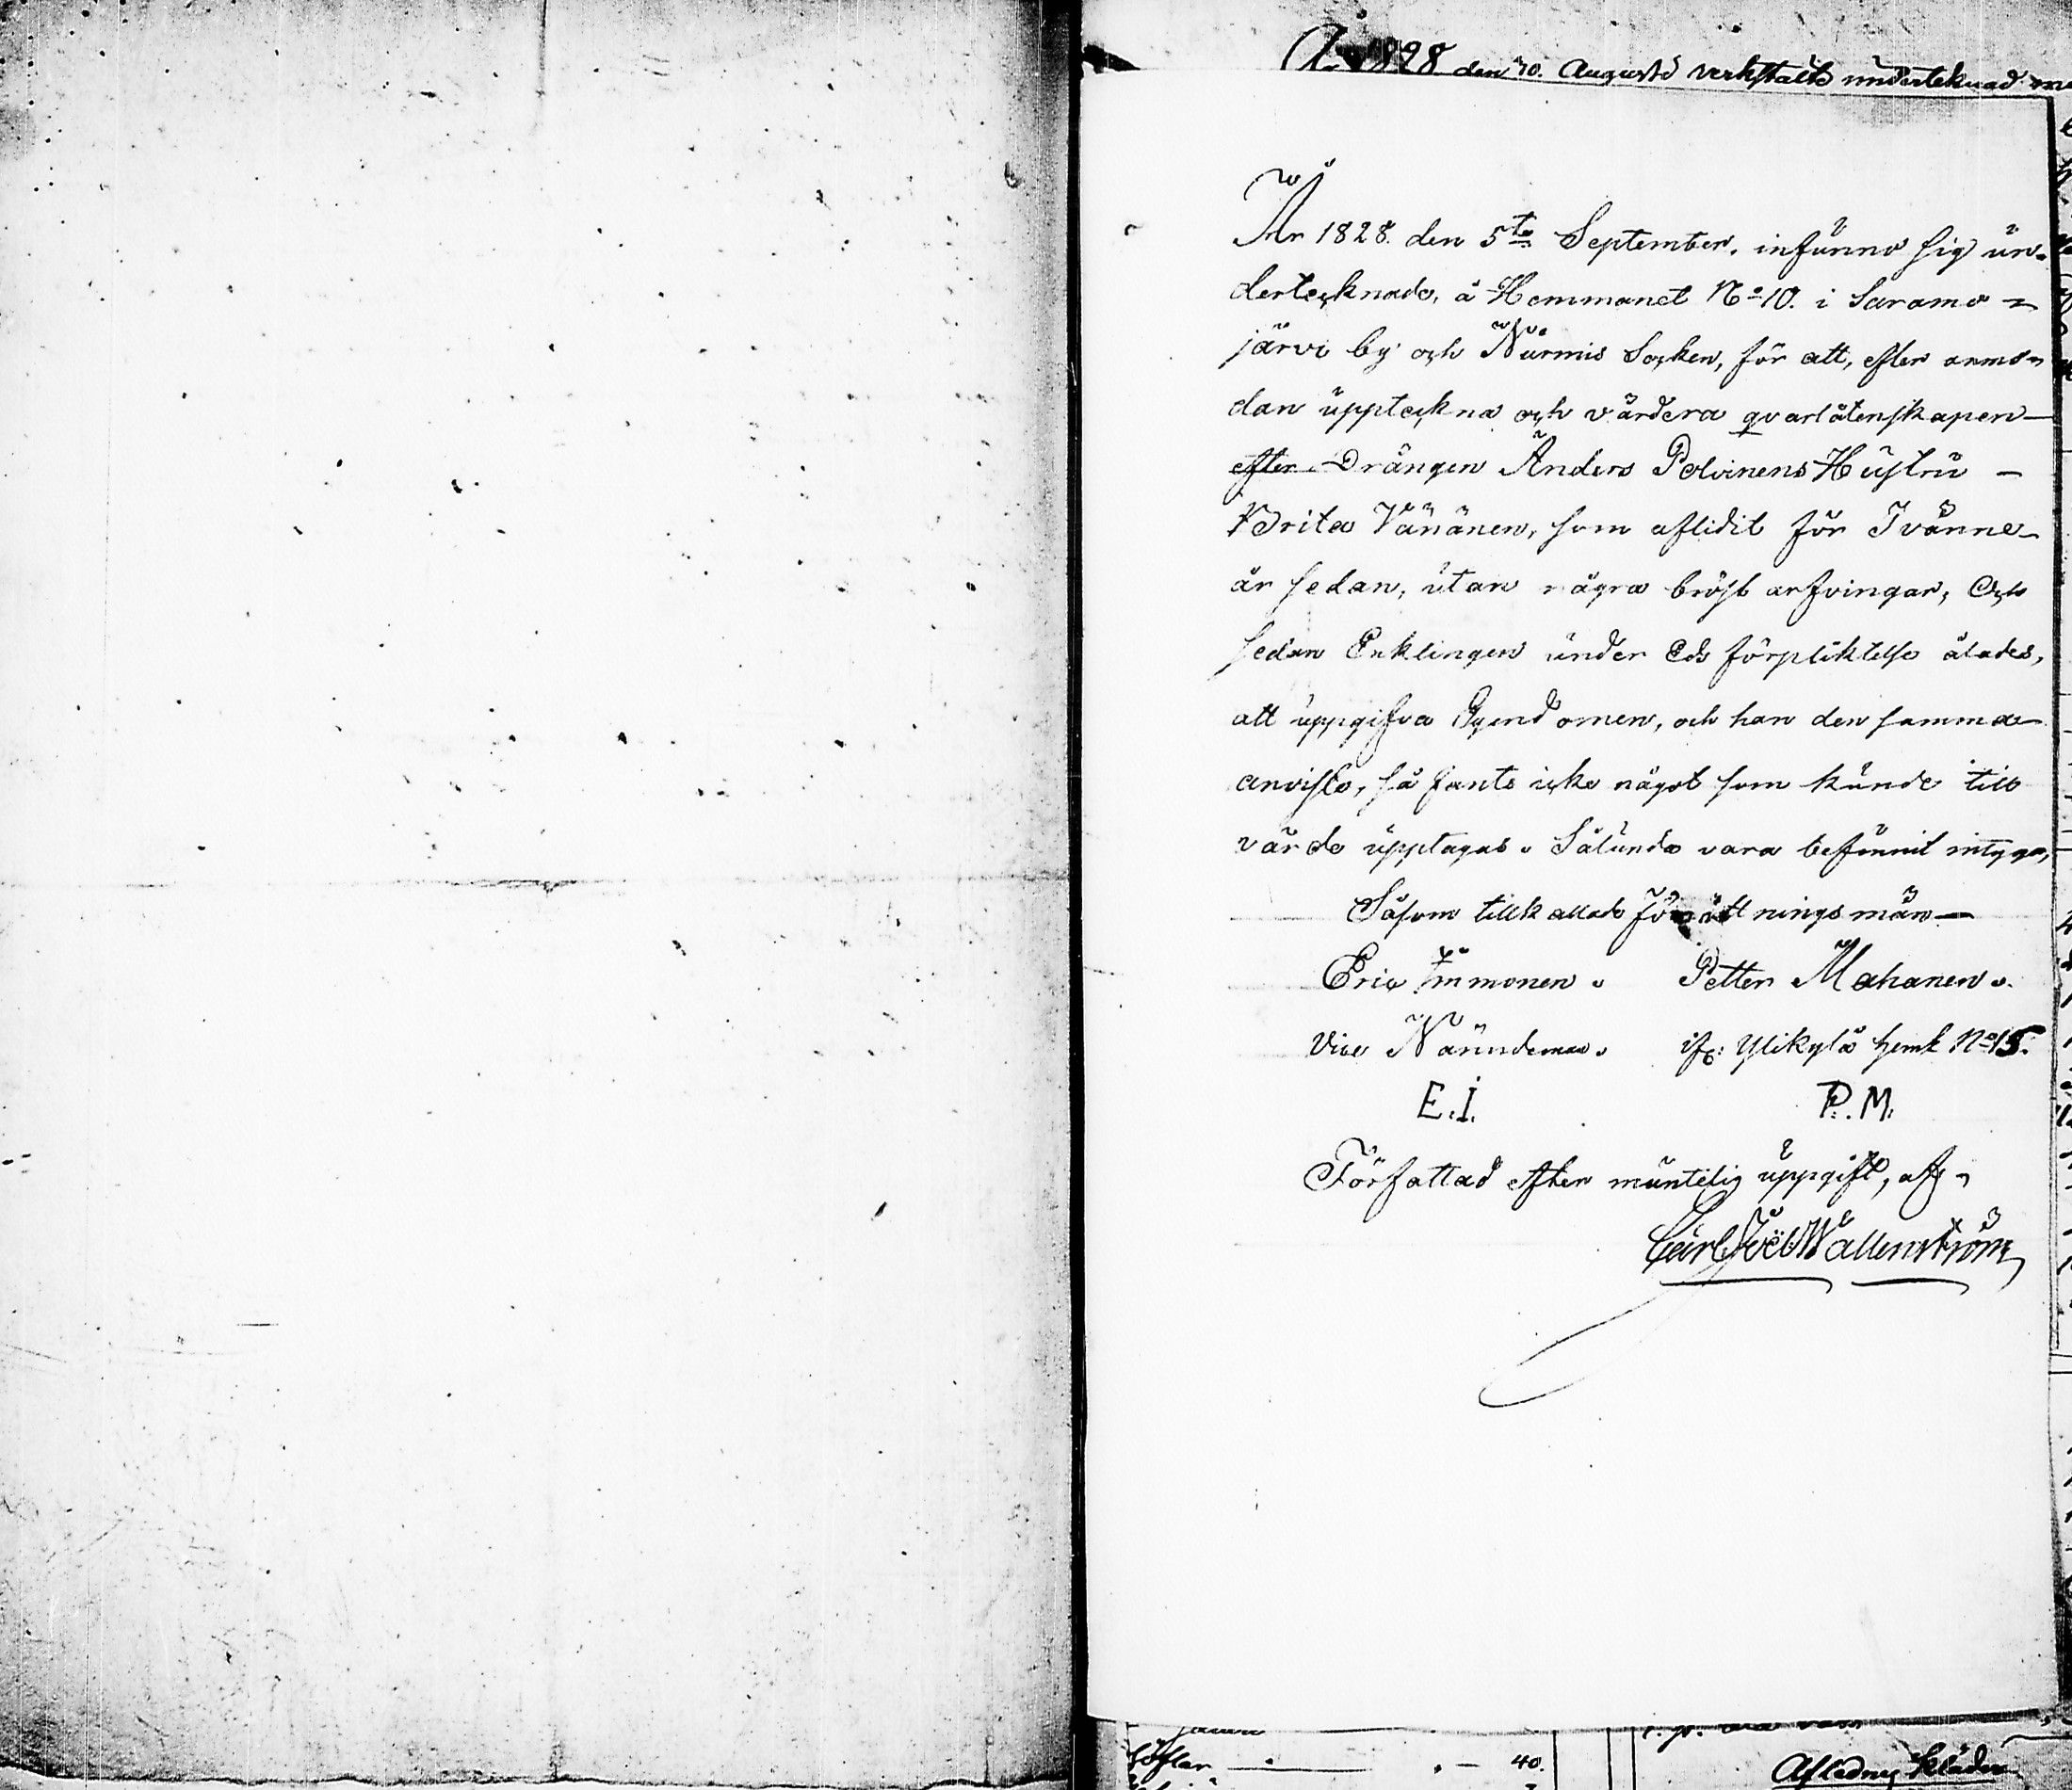 1828 den 10. Augusti verkstälte underteknad
År 1828. den 5te September. infunno sig un-
dertecknade, å Hemmanet No 10. i Saramo =
järvi by och Nurmis Socken, för att, efter anmo-
dan uppteckna och värdera qvarlåtenskapen
efter Drängen Anders Polvinens Hustru
Brita Vänänen, som aflidit för Tvänne
år sedan, utan några bröst arfvingar, Och
sedan Enklingen under Eds förpliktelse ålades,
att uppgifva Egendomen, och han den samma
anviste, så fants icke något som kunde till
värde upptagas. Sålunda vara befunnit intyga,
Såsom tillkallade förrättningsmän
Eric Immonen. Petter Mahanen.
Vice Nämndeman. ifr: Ylikylä hemk No 15.
E.I. P.M.
Författad efter muntelig uppgift, af
Carl Joël Wallenström
40.
Aflednes kläder